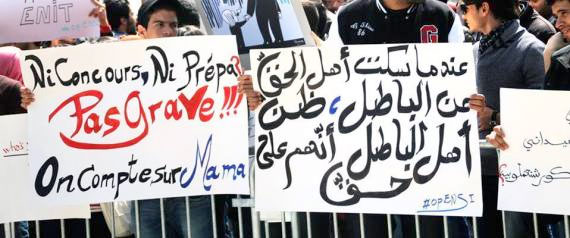 ENIT
Ni Concours, Ni Prépa?
Pas Grave!!!
On Compte sur Mama
عندما سكت أهل الحق
عن الباطل، ظن
أهل الباطل أنّهم على
حق
#OpENSI